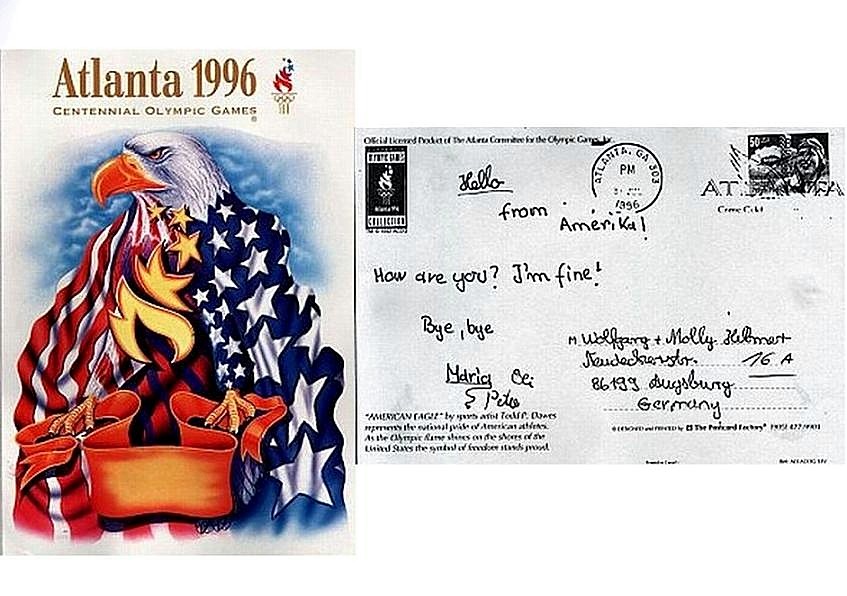 Atlanta 1996
CENTENNIAL OLYMPIC GAMES
®
Official Licensed Product of The Atlanta Committee for the Olympic Games, Inc.
OLYMPIC GAMES
Atlanta 1996
COLLECTION
ATLANTA, GA 303
PM
1996
50
ATLANTA
Hello
from Amerika!
How are you? I'm fine!
Bye, bye
Maria
Pete
Wolfgang + Molly
16 A
86199 Augsburg
Germany
"AMERICAN EAGLE" by sports artist Todd P. Dawes
represents the national pride of American athletes.
As the Olympic flame shines on the shores of the
United States the symbol of freedom stands proud.
® DESIGNED and PRINTED by The Postcard Factory® (905) 477-9901